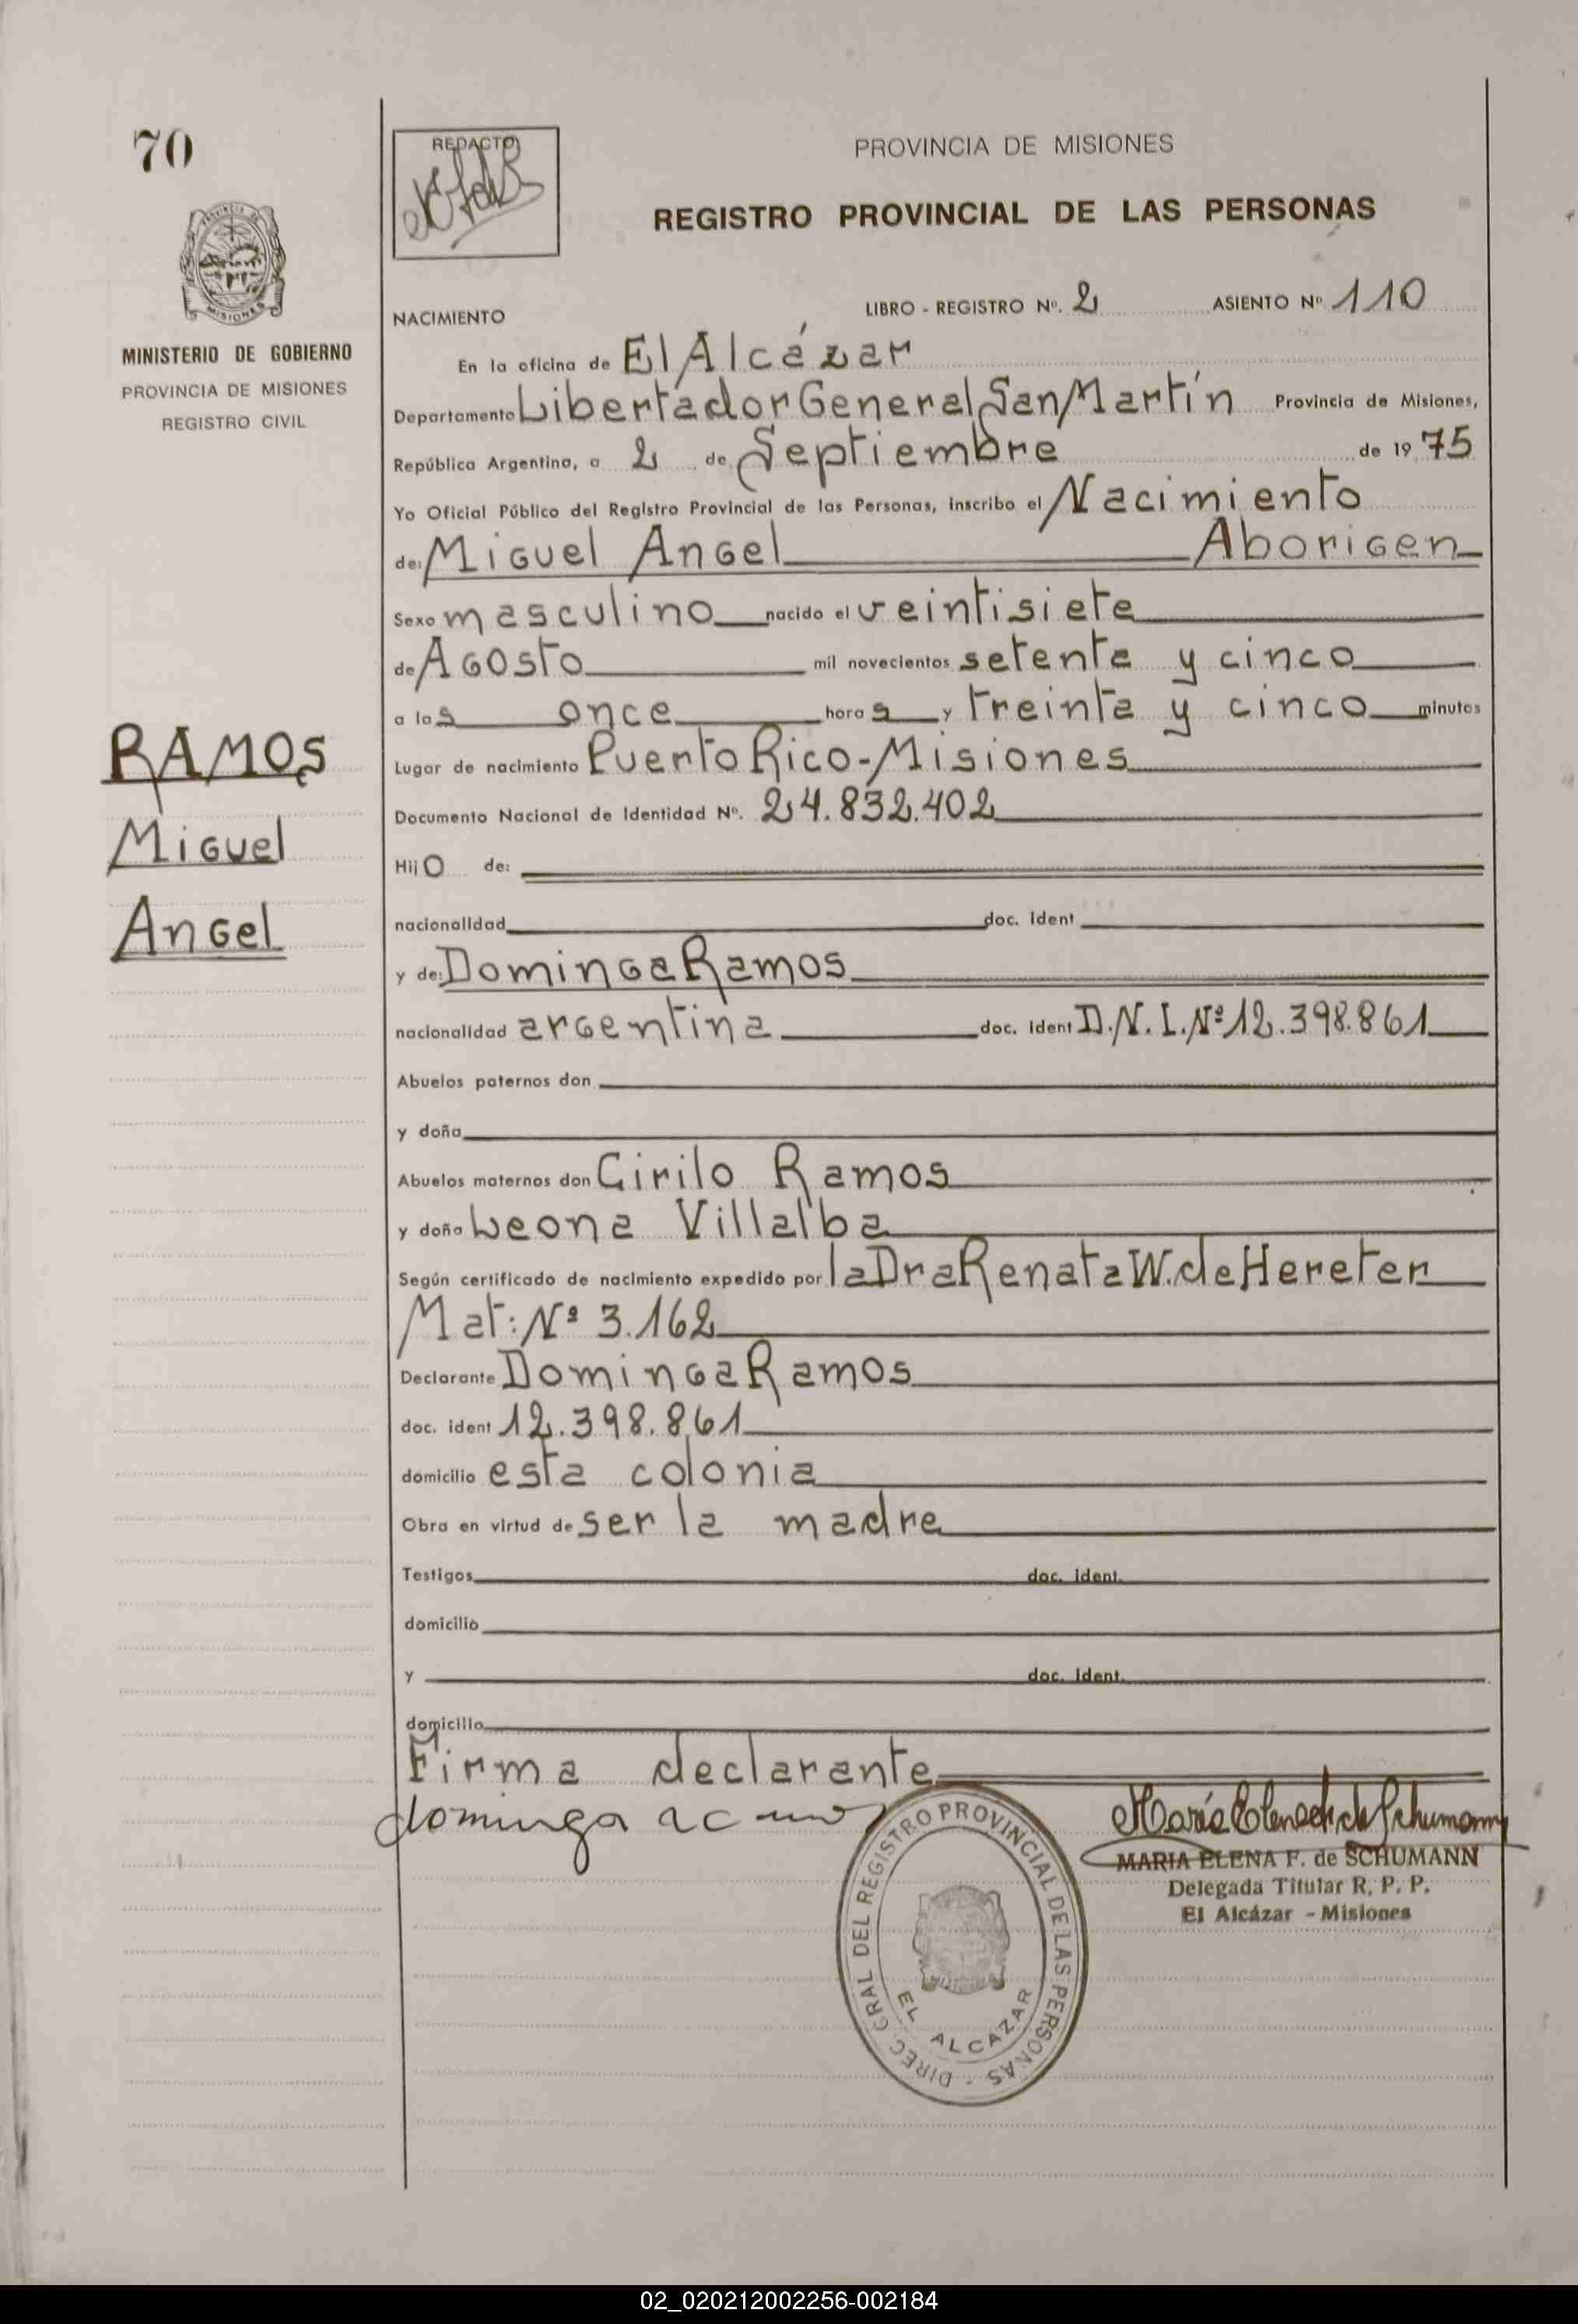 70
REDACTO
PROVINCIA DE MISIONES
REGISTRO PROVINCIAL DE LAS PERSONAS
MINISTERIO DE GOBIERNO
PROVINCIA DE MISIONES
REGISTRO CIVIL
NACIMIENTO LIBRO - REGISTRO Nº. 2 ASIENTO Nº 110
En la oficina de El Alcázar
Departamento Libertador General San Martín Provincia de Misiones,
República Argentina, a 2 de Septiembre de 1975
Yo Oficial Público del Registro Provincial de las Personas, inscribo el Nacimiento
de: Miguel Angel Aborigen
Sexo masculino nacido el veintisiete
de Agosto mil novecientos setenta y cinco
a las once horas y treinta y cinco minutos
RAMOS
Miguel
Angel
Lugar de nacimiento Puerto Rico - Misiones
Documento Nacional de Identidad Nº. 24.832.402
Hijo de:
nacionalidad doc. ident
y de: Dominga Ramos
nacionalidad argentina doc. ident D.N.I.Nº 12.398.861
Abuelos paternos don
y doña
Abuelos maternos don Cirilo Ramos
y doña Leona Villalba
Según certificado de nacimiento expedido por la Dra Renata W. de Hereter
Mat: Nº 3.162
Declarante Dominga Ramos
doc. ident 12.398.861
domicilio esta colonia
Obra en virtud de ser la madre
Testigos doc. ident.
domicilio
y doc. ident.
domicilio
Firma declarante
dominga
MARIA ELENA F. de SCHUMANN
Delegada Titular R. P. P.
El Alcázar - Misiones
DIREC. GRAL DEL REGISTRO PROVINCIAL DE LAS PERSONAS -
EL ALCAZAR
02_020212002256-002184